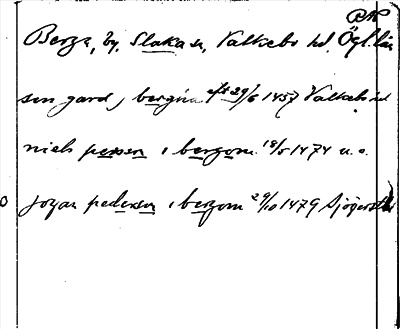 RK
Berga, by, Slaka sn, Valkebo hd, Ögl. län
sin gard j bergum eft 29/6 1457 Valkebo hd
niels person i bergom 18/5 1474 u. o.
joyan pederson i bergom 29/10 1479